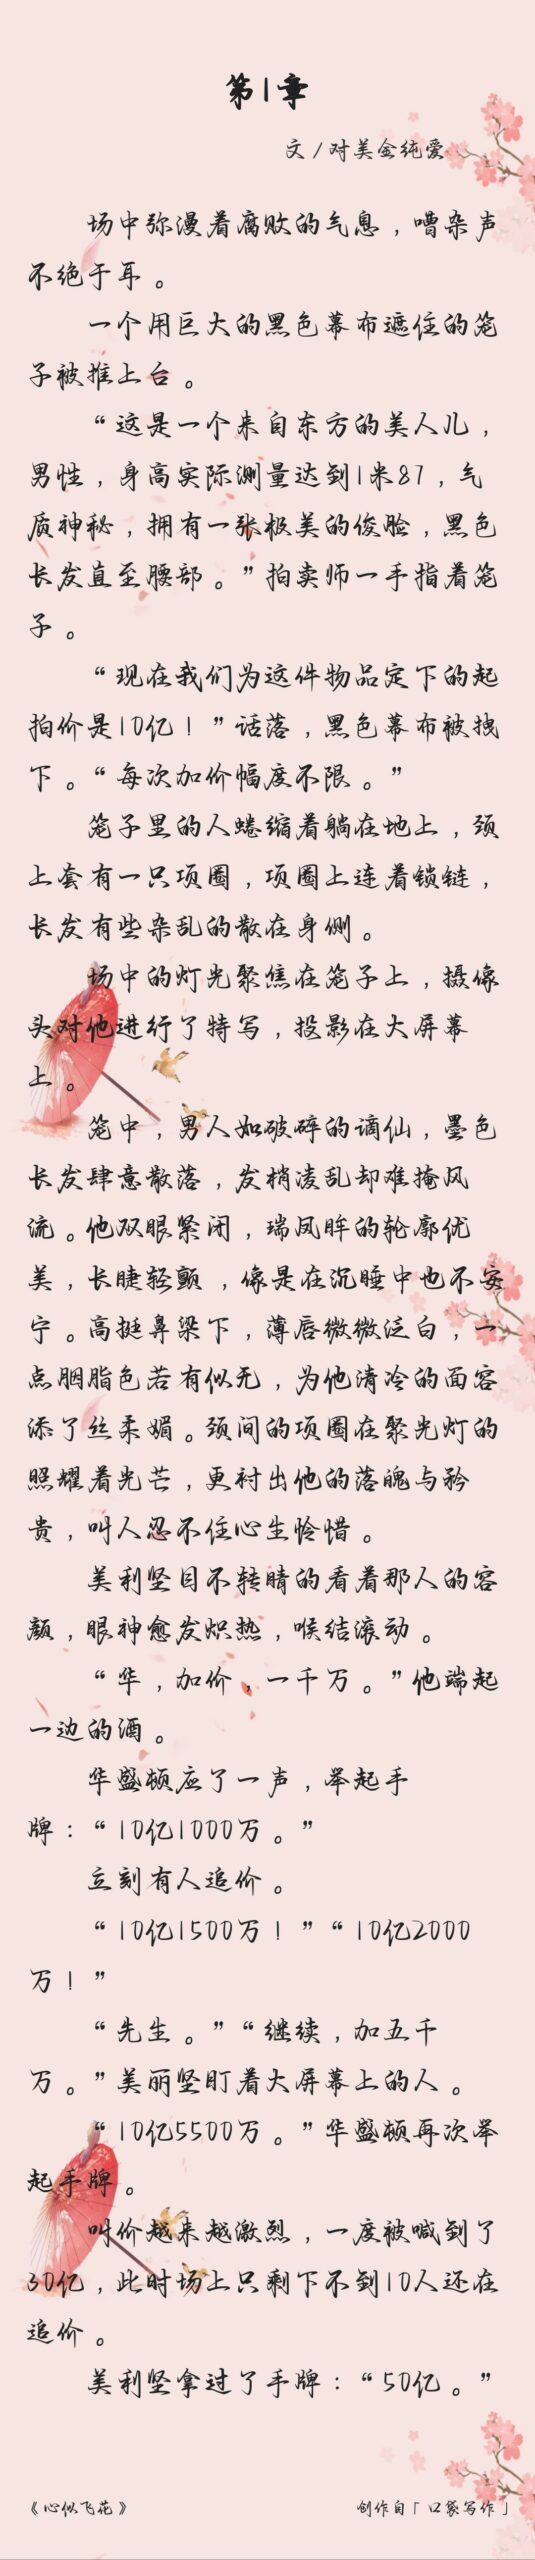 第1章
文/对美金纯爱
场中弥漫着腐败的气息，嘈杂声
不绝于耳。
一个用巨大的黑色幕布遮住的笼
子被推上台。
“这是一个来自东方的美人儿，
男性，身高实际测量达到1米87，气
质神秘，拥有一张极美的俊脸，黑色
长发直至腰部。”拍卖师一手指着笼
子。
“现在我们为这件物品定下的起
拍价是10亿！”话落，黑色幕布被拽
下。“每次加价幅度不限。”
笼子里的人蜷缩着躺在地上，颈
上套有一只项圈，项圈上连着锁链，
长发有些杂乱的散在身侧。
场中的灯光聚焦在笼子上，摄像
头对他进行了特写，投影在大屏幕
上。
笼中，男人如破碎的谪仙，墨色
长发肆意散落，发梢凌乱却难掩风
流。他双眼紧闭，瑞凤眸的轮廓优
美，长睫轻颤，像是在沉睡中也不安
宁。高挺鼻梁下，薄唇微微泛白，一
点胭脂色若有似无，为他清冷的面容
添了丝柔媚。颈间的项圈在聚光灯的
照耀着光芒，更衬出他的落魄与矜
贵，叫人忍不住心生怜惜。
美利坚目不转睛的看着那人的容
颜，眼神愈发炽热，喉结滚动。
“华，加价，一千万。”他端起
一边的酒。
华盛顿应了一声，举起手
牌：“10亿1000万。”
立刻有人追价。
“10亿1500万！”“10亿2000
万！”
“先生。”“继续，加五千
万。”美丽坚盯着大屏幕上的人。
“10亿5500万。”华盛顿再次举
起手牌。
叫价越来越激烈，一度被喊到了
30亿，此时场上只剩下不到10人还在
追价。
美利坚拿过了手牌：“50亿。”
《心似飞花》
创作自「口袋写作」